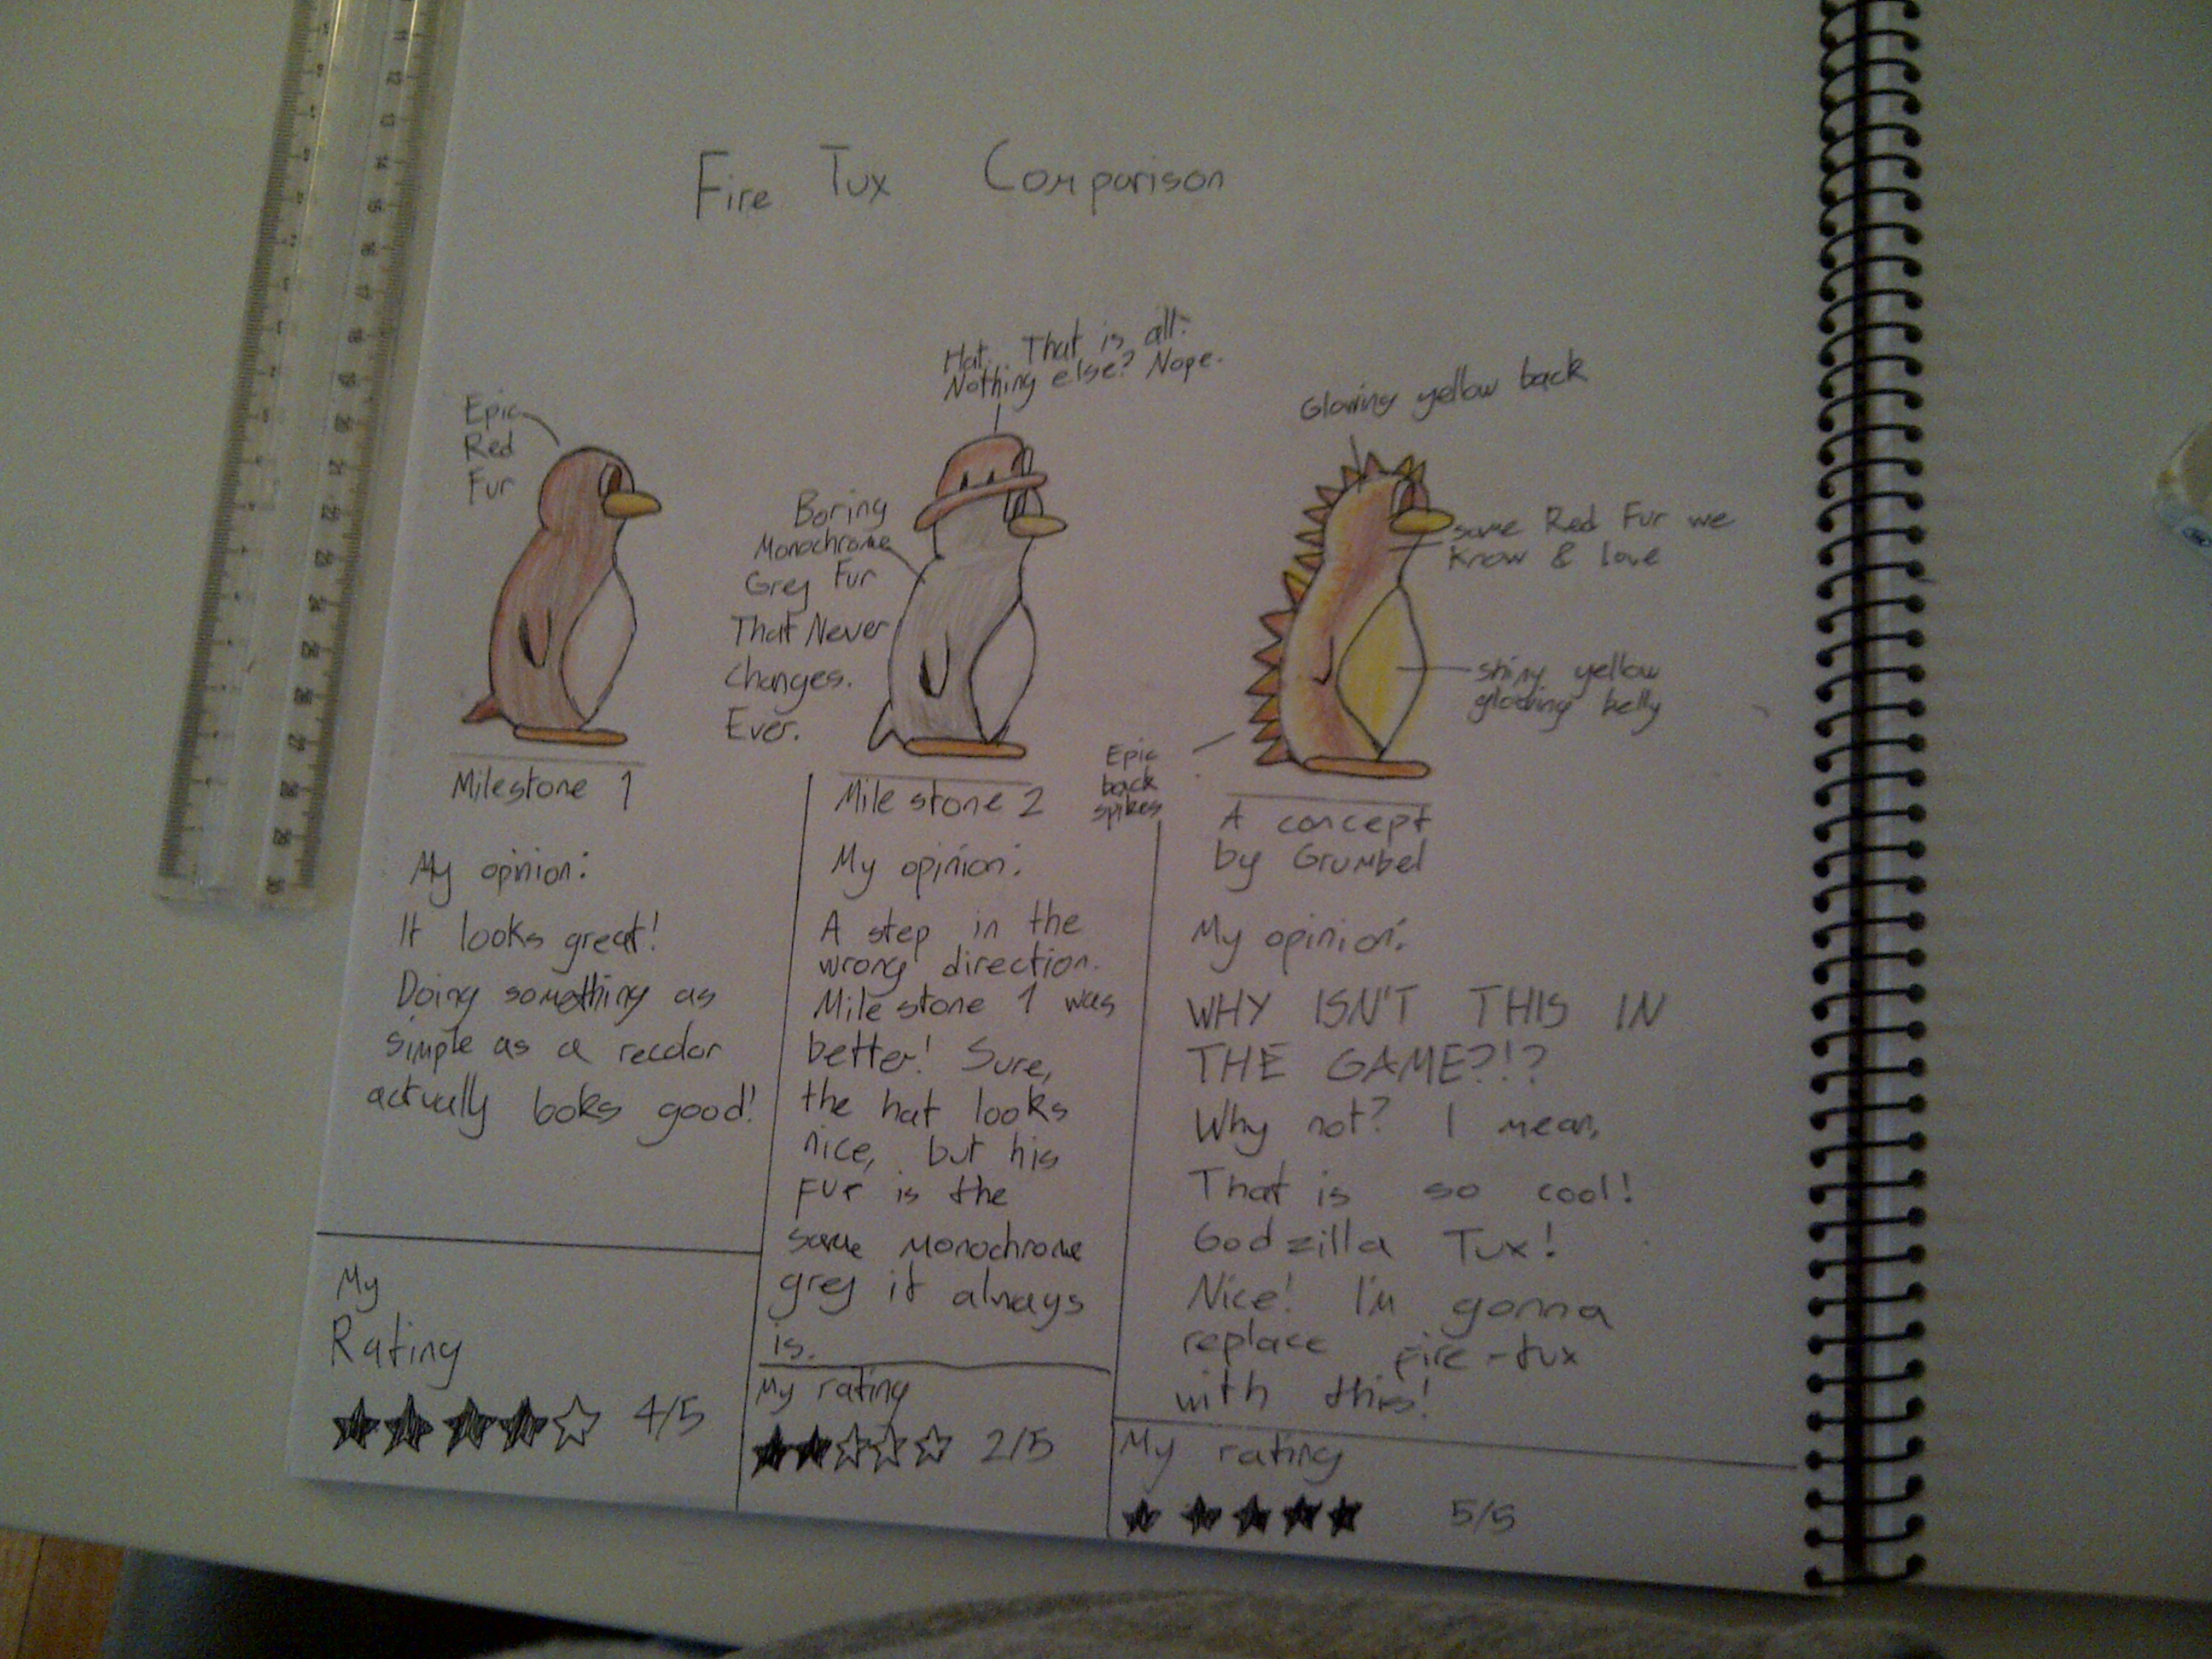 Fire Tux Comparison
Epic
Red
Fur
Milestone 1
My opinion:
It looks great!
Doing something as
simple as a recolor
actually looks good!
My
Rating
4/5
Hat. That is all.
Nothing else? Nope.
Boring
Monochrome
Grey Fur
That Never
Changes.
Ever.
Milestone 2
My opinion:
A step in the
wrong direction.
Milestone 1 was
better! Sure,
the hat looks
nice, but his
Fur is the
same monochrome
grey it always
is.
My rating
2/5
Glowing yellow back
same Red Fur we
Know & love
shiny yellow
glowing belly
Epic
back
spikes
A concept
by Grumbel
My opinion:
WHY ISN'T THIS IN
THE GAME?!?
Why not? I mean,
That is so cool!
Godzilla Tux!
Nice! I'm gonna
replace fire-tux
with this!
My rating
5/5
11
12
13
14
15
16
17
18
19
20
21
22
23
24
25
26
27
28
29
30